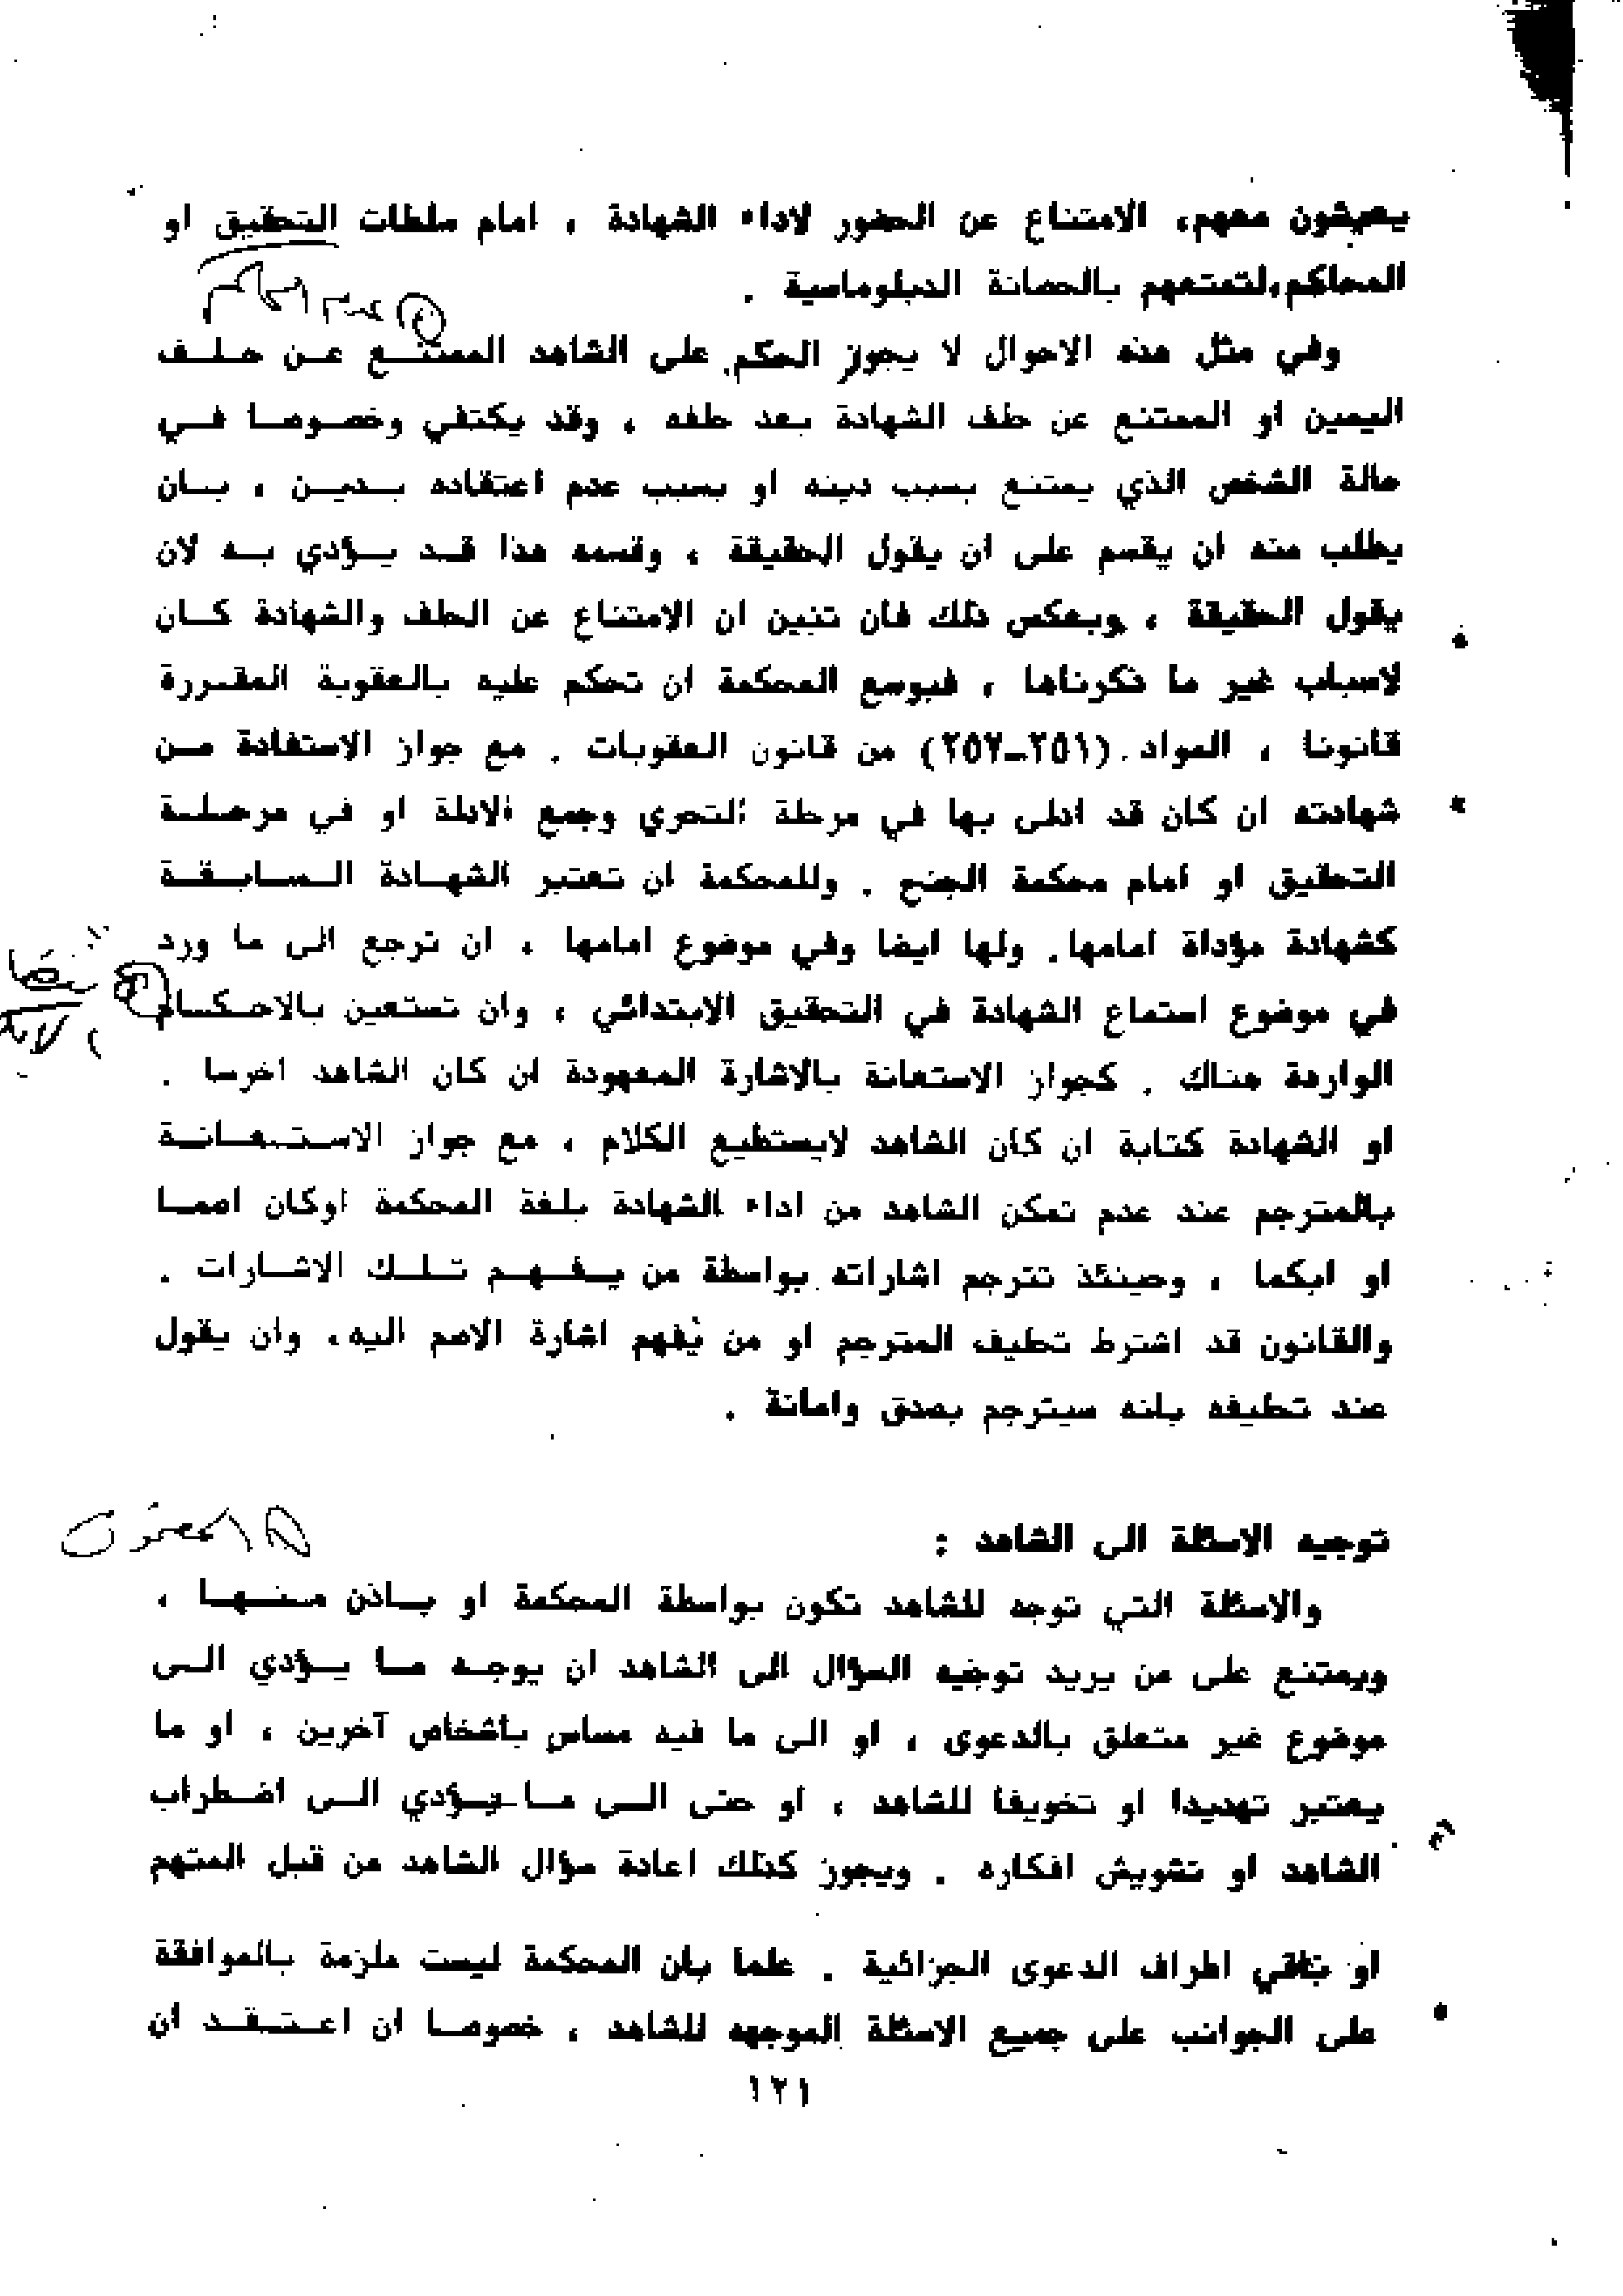 يعيشون معهم، الامتناع عن الحضور لاداء الشهادة ، امام سلطات التحقيق او
المحاكم،لتمتعهم بالحصانة الدبلوماسية .
وفي مثل هذه الاحوال لا يجوز الحكم على الشاهد الممتنع عن حلف
اليمين او الممتنع عن حلف الشهادة بعد حلفه ، وقد يكتفي وخصوصا في
حالة الشخص الذي يمتنع بسبب دينه او بسبب عدم اعتقاده بدين ، بان
يطلب منه ان يقسم على ان يقول الحقيقة ، وقسمه هذا قد يؤدي به لان
يقول الحقيقة ، وبعكس ذلك فان تبين ان الامتناع عن الحلف والشهادة كان
لاسباب غير ما ذكرناها ، فبوسع المحكمة ان تحكم عليه بالعقوبة المقررة
قانونا ، المواد (٢٥١-٢٥٧) من قانون العقوبات . مع جواز الاستفادة من
شهادته ان كان قد ادلى بها في مرحلة التحري وجمع الادلة او في مرحلة
التحقيق او امام محكمة الجنح . وللمحكمة ان تعتبر الشهادة السابقة
كشهادة مؤداة امامها. ولها ايضا وفي موضوع امامها ، ان ترجع الى ما ورد
في موضوع استماع الشهادة في التحقيق الابتدائي ، وان تستعين بالاحكام
الواردة هناك . كجواز الاستعانة بالاشارة المعهودة ان كان الشاهد اخرسا .
او الشهادة كتابة ان كان الشاهد لايستطيع الكلام ، مع جواز الاستعانة
بالمترجم عند عدم تمكن الشاهد من اداء الشهادة بلغة المحكمة اوكان اصما
او ابكما ، وحينئذ تترجم اشاراته بواسطة من يفهم تلك الاشارات .
والقانون قد اشترط تحليف المترجم او من يفهم اشارة الاصم اليه، وان يقول
عند تحليفه بانه سيترجم بصدق وامانة .
توجيه الاسئلة الى الشاهد :
والاسئلة التي توجه للشاهد تكون بواسطة المحكمة او باذن منها ،
ويمتنع على من يريد توجيه السؤال الى الشاهد ان يوجه ما يؤدي الى
موضوع غير متعلق بالدعوى ، او الى ما فيه مساس باشخاص آخرين ، او ما
يعتبر تهديدا او تخويفا للشاهد ، او حتى الى ما يؤدي الى اضطراب
الشاهد او تشويش افكاره . ويجوز كذلك اعادة سؤال الشاهد من قبل المتهم
او باقي اطراف الدعوى الجزائية . علما بان المحكمة ليست ملزمة بالموافقة
على الجوانب على جميع الاسئلة الموجهه للشاهد ، خصوصا ان اعتقد ان
١٢١